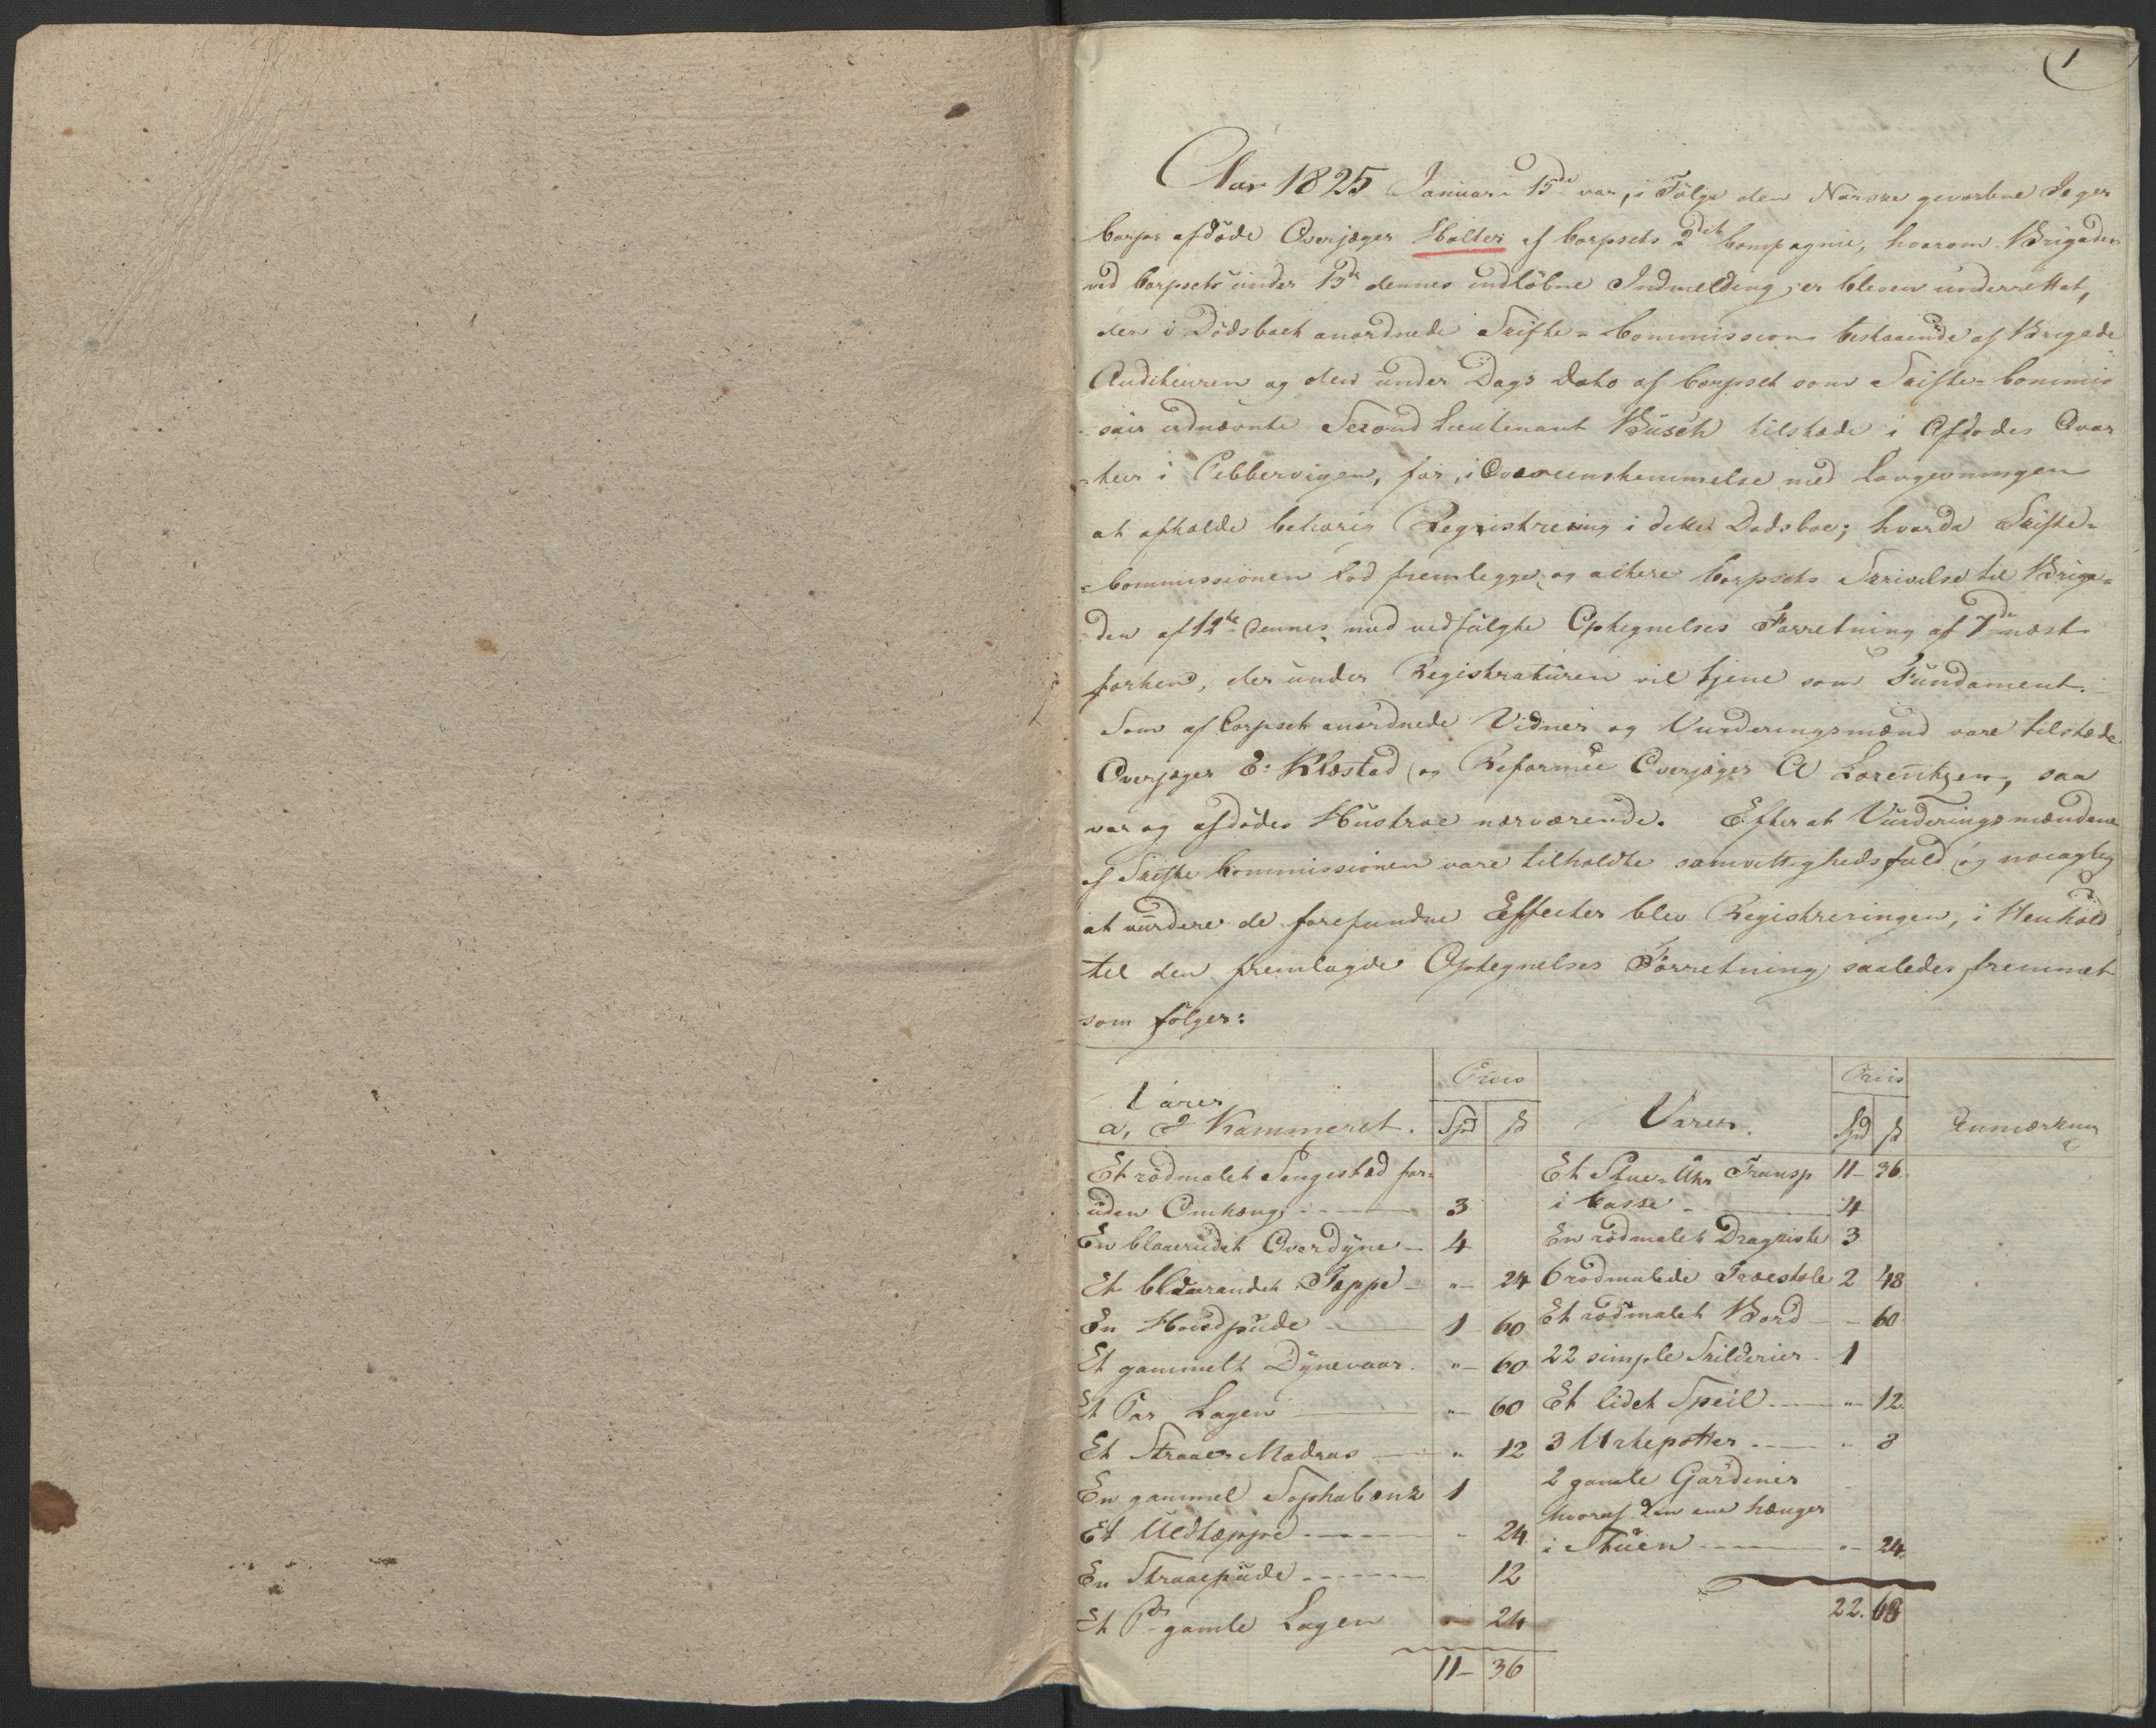 1
Aar 1825 Januari 15de var, i Følge den Norske gevorbne Jæger
Corps afdöde Overjæger Holter af Corpsets 2det Compagnie, hvorom Brigaden
ved Corpsets under 13de dennes indlöbne Indmelding er bleven underrettet,
den i Dödsboet anordnede Skifte-Commission bestaaende af Brigade
Auditeuren og den under Dags Dato af Corpset som Skifte-Commis
sair udnævnte Second Lieutenant Busch tilstæde i Afdödes Qvar
-teer i Pebbervigen, for, i Overeensstemmelse med Lovgivningen
at afholde behørig Registrering i dette Dødsboe; hvorda Skifte-
-Commissionen lod fremlegge og actere Corpsets Skrivelse til Briga-
den af 12te dennes, med vedfülgte Optegnelses Forretning af 7de næst
forhen, der under Registraturen vil tjene som Fundament.
Som af Corpset anordnede Vidner og Vurderingsmænd vare tilstæde
Overjæger E: Klæstad og Reformee Overjæger A Lorentzen, saa
var og afdödes Hustroe nærværende. Efter at Vurderingsmændene
af Skifte Commissionen vare tilholdte samvittighedsfuld og nöiagtig
at vurdere de forefundne Effecter blev Registreringen, i Henhold
til den fremlagde Optegnelses Forretning saaledes fremmet
som fölger:
Varer Priis Varer. Priis Anmærkning
a, I Kammeret. Spd ß Spd ß
Et rödmalet Sengestæd for-
uden Omhæng 3
En blaarudet Overdyne 4
Et blaarandet Teppe " 24
En Hovedpude 1 60
Et gammelt Dynevaar. " 60
Et Par Lagen " 60
Et Straae Madras " 12
En gammel Sophabænk 1
Et Uldtæppe " 24
En Straaepude 12
Et Pr gamle Lagen " 24
11 36
Et Stue-Uhr Transp 11 36.
i Casse 4
En rödmalet Dragkiste 3
6 rödmalede Træestole 2 48
Et rödmalet Bord " 60
22 simple Skilderier 1
Et lidet Speil " 12.
3 Urtepotter " 8
2 gamle Gardiner
hvoraf den ene hænger
i Stuen " 24.
22. 68